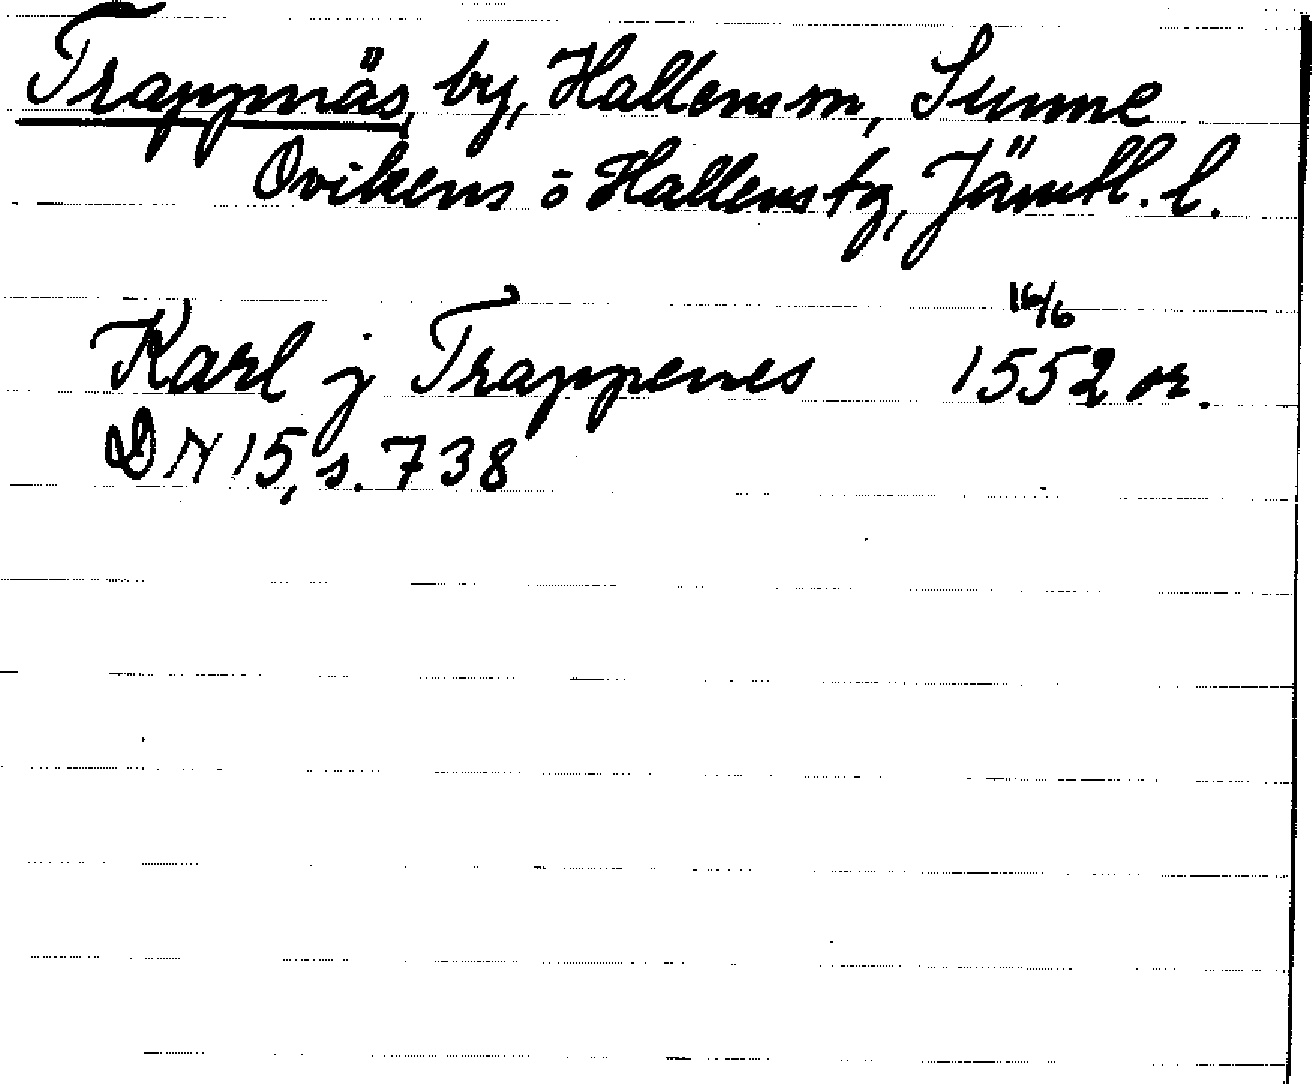 Trappnäs, by, Hallens sn, Sunne
Ovikens o Hallens tg, Jämtl. l.
16/6
Karl j Trappenes 1552 or.
DN 15, s. 738